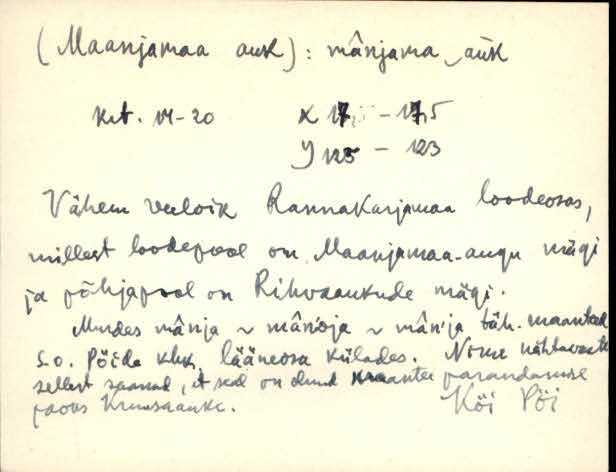 (Maanjamaa auk) : mânjama_aúk
Krt. VI-20 X 17,5 - 17,5
Y 125 - 123
Vähem veeloik Rannakarjamaa loodeosas,
millest loodepool on Maanjamaa-augu mägi
ja põhjapool on Rihvaaukude mägi.
Murdes mânja ~ mân'oja ~ mân'ja täh. maanteed
s.o. Pöide khk. lääneosa külades. Nime nähtavasti
sellest saanud, et seal on olnud maantee parandamise
jaoks kruusaauke. Köi Pöi